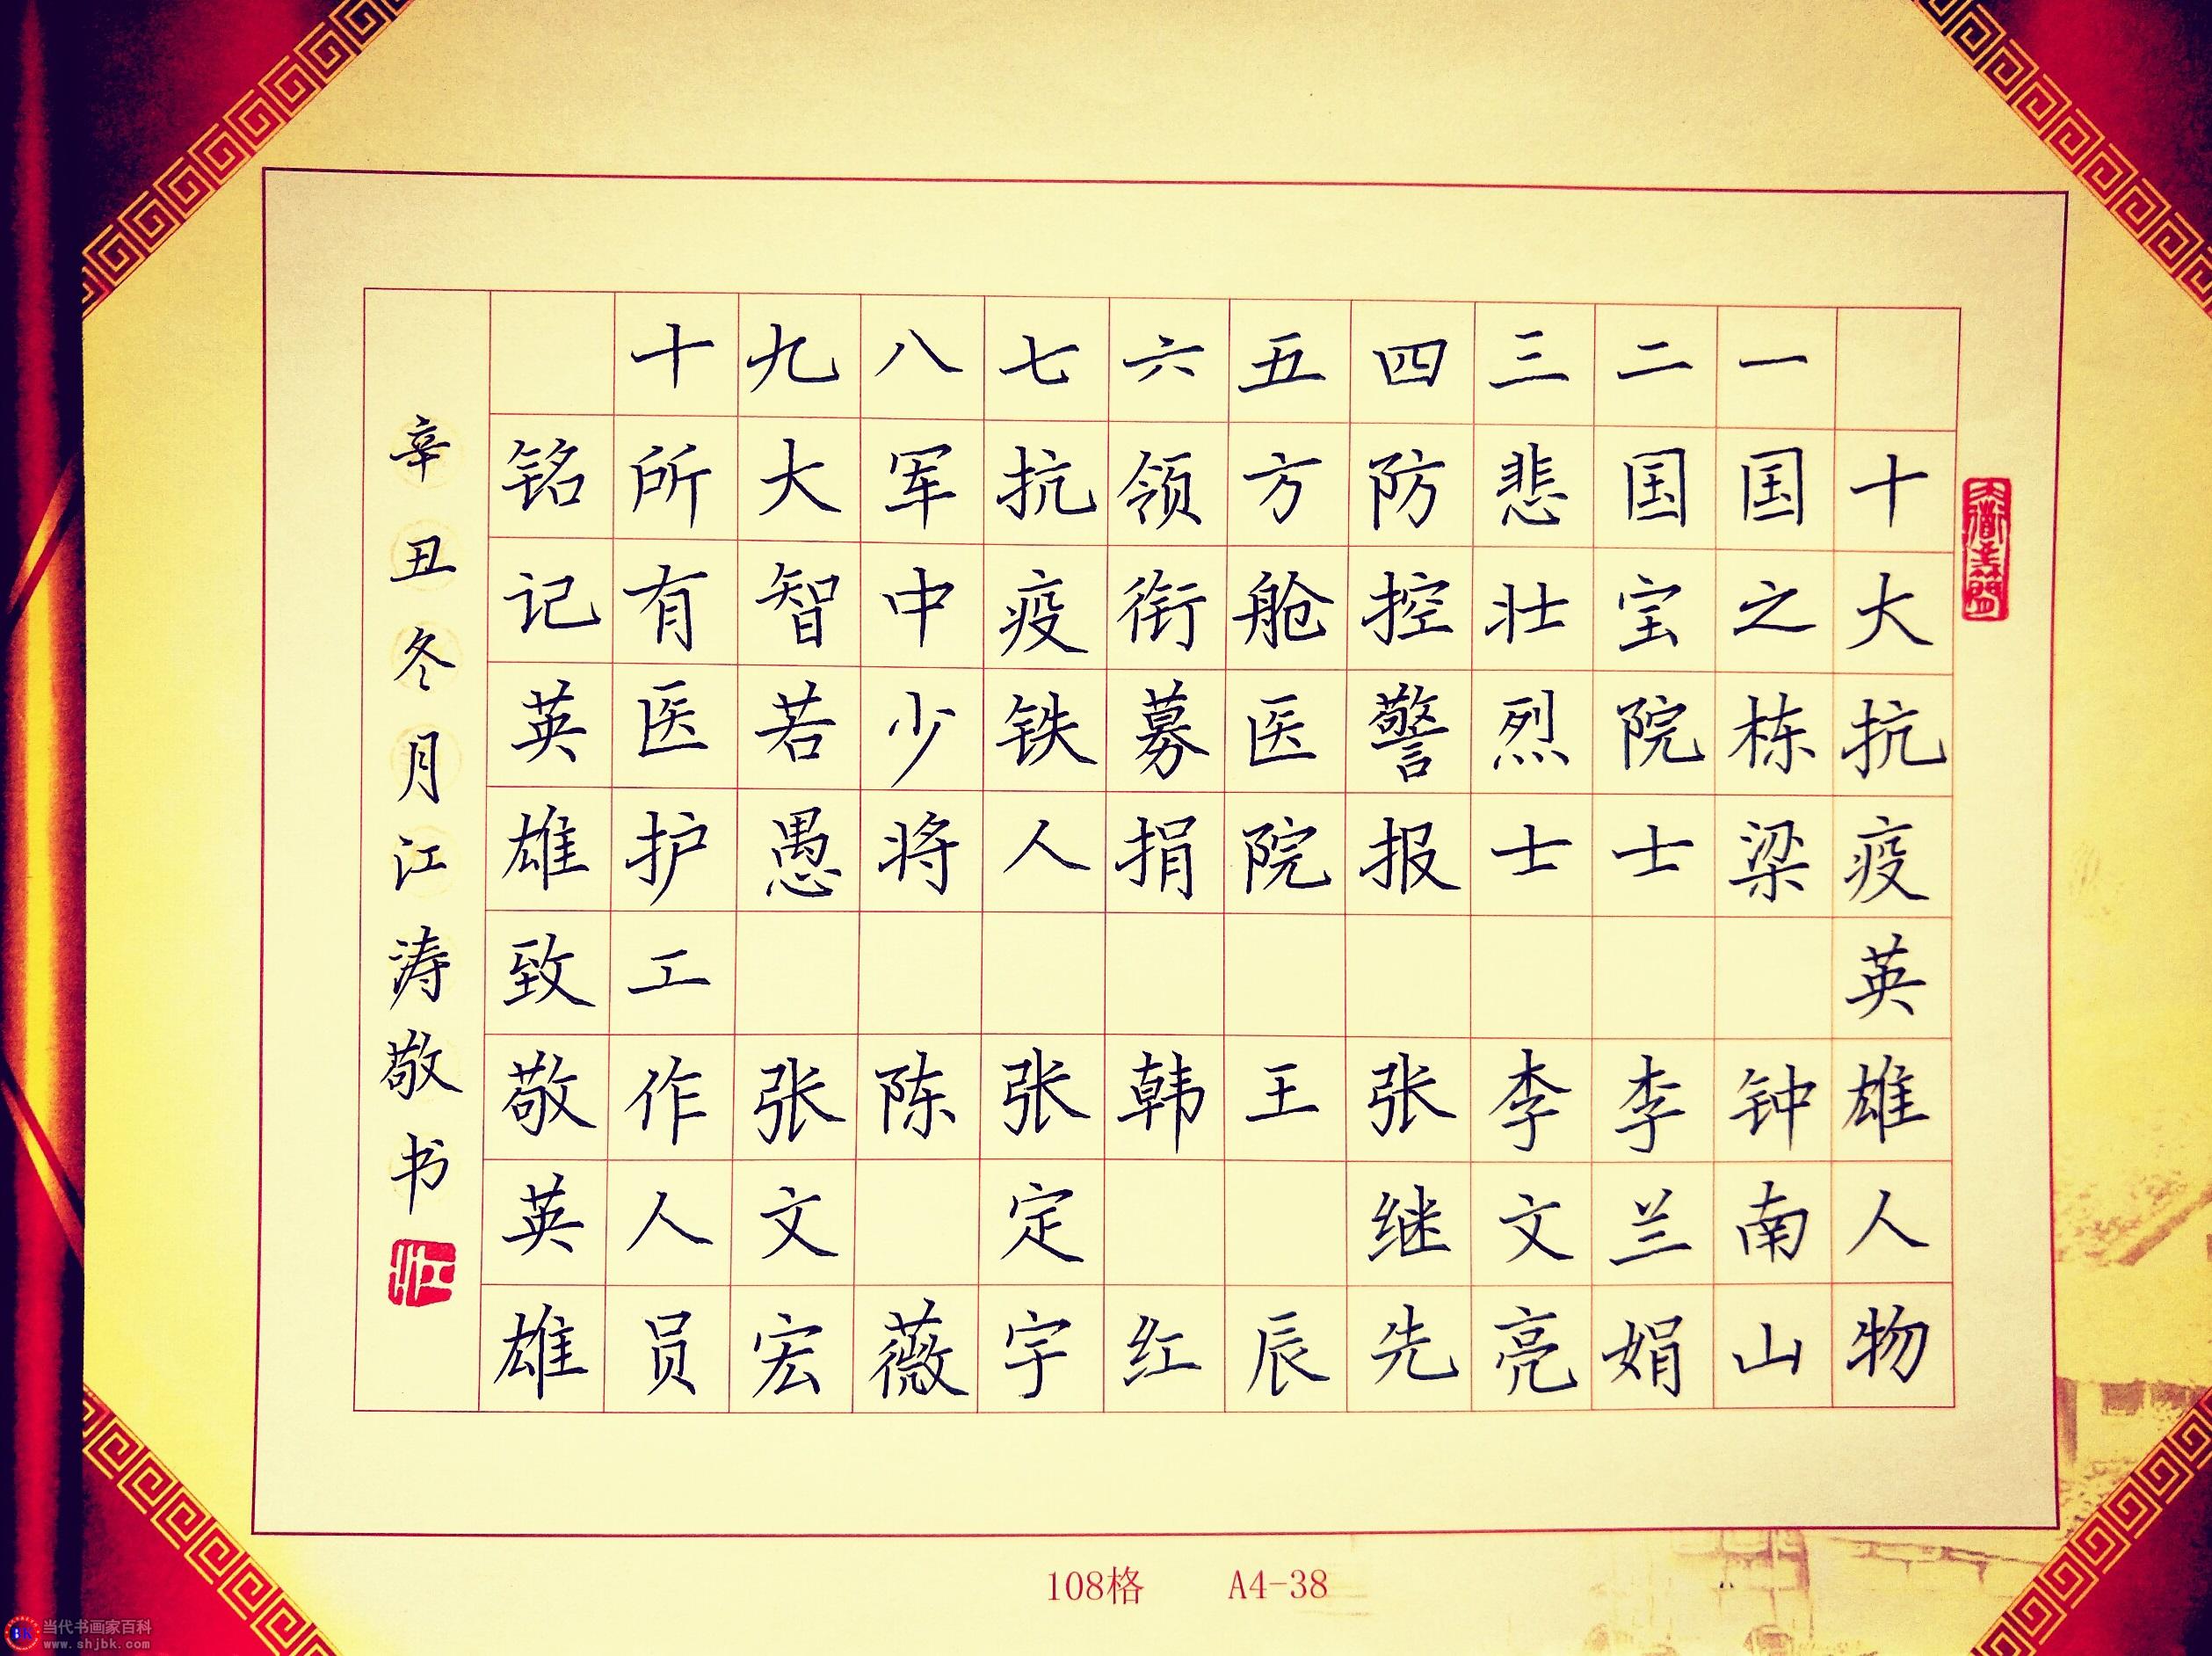 十大抗疫英雄人物
一国之栋梁 钟南山
二国宝院士 李兰娟
三悲壮烈士 李文亮
四防控警报 张继先
五方舱医院 王辰
六领衔募捐 韩红
七抗疫铁人 张定宇
八军中少将 陈薇
九大智若愚 张文宏
十所有医护工作人员
铭记英雄致敬英雄
辛丑冬月江涛敬书
108格 A4-38
当代书画家百科
www.shjbk.com